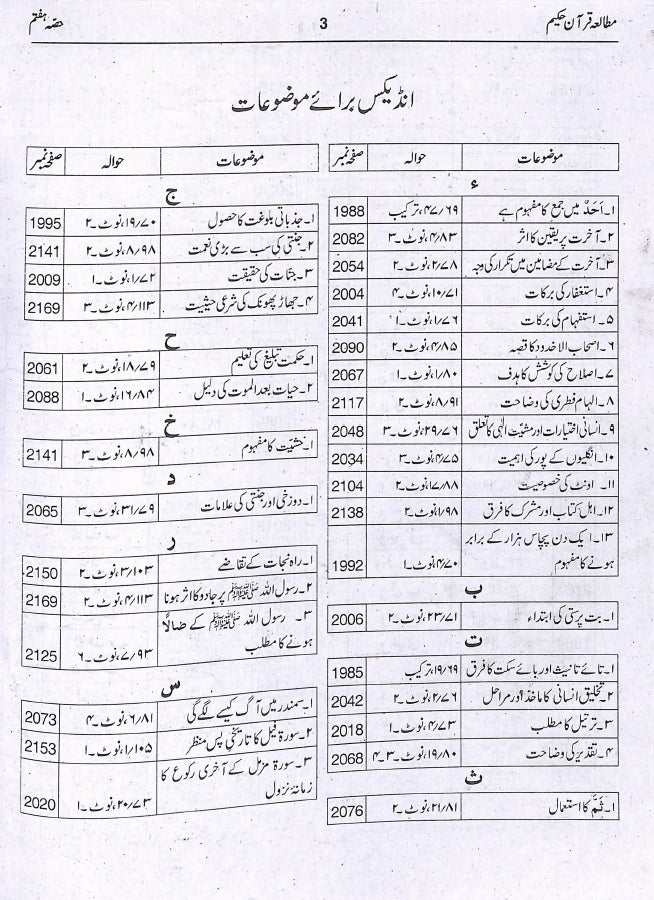 مطالعہ قرآن حکیم 3 حصّہ ہفتم
انڈیکس برائے موضوعات
موضوعات حوالہ صفحہ نمبر
ء
۱۔ اَحَدٌ میں جمع کا مفہوم ہے ۴۷/۶۹، ترکیب 1988
۲۔ آخرت پر یقین کا اثر ۴/۸۳، نوٹ۔۳ 2082
۳۔ آخرت کے مضامین میں تکرار کی وجہ ۲/۷۸، نوٹ۔۲ 2054
۴۔ استغفار کی برکات ۱۰/۷۱، نوٹ۔۴ 2004
۵۔ استفہام کی برکات ۱/۷۶، نوٹ۔۱ 2041
۶۔ اصحاب الاخدود کا قصہ ۴/۸۵، نوٹ۔۲ 2090
۷۔ اصلاح کی کوشش کا ہدف ۱/۸۰، نوٹ۔۱ 2067
۸۔ الہام فطری کی وضاحت ۸/۹۱، نوٹ۔۲ 2117
۹۔ انسانی اختیارات اور مشیّت الٰہی کا تعلق ۲۹/۷۶، نوٹ۔۳ 2048
۱۰۔ انگلیوں کے پور کی اہمیت ۴/۷۵، نوٹ۔۳ 2034
۱۱۔ اونٹ کی خصوصیت ۱۷/۸۸، نوٹ۔۲ 2104
۱۲۔ اہل کتاب اور مشرک کا فرق ۱/۹۸، نوٹ۔۲ 2138
۱۳۔ ایک دن پچاس ہزار کے برابر
ہونے کا مفہوم ۴/۷۰، نوٹ۔۱ 1992
ب
۱۔ بت پرستی کی ابتداء ۲۳/۷۱، نوٹ۔۲ 2006
ت
۱۔ تائے تانیث اور ہائے سکت کا فرق ۱۹/۶۹، ترکیب 1985
۲۔ تخلیق انسانی کا ماخذ اور مراحل ۲/۷۶، نوٹ۔۲ 2042
۳۔ ترتیل کا مطلب ۴/۷۳، نوٹ۔۱ 2018
۴۔ تقدیر کی وضاحت ۱۹/۸۰، نوٹ۔۳۔۴ 2068
ث
۱۔ ثَمَّ کا استعمال ۲۱/۸۱، نوٹ۔۲ 2076
موضوعات حوالہ صفحہ نمبر
ج
۱۔ جذباتی بلوغت کا حصول ۱۹/۷۰، نوٹ۔۲ 1995
۲۔ جنتی کی سب سے بڑی نعمت ۸/۹۸، نوٹ۔۲ 2141
۳۔ جنّات کی حقیقت ۱/۷۲، نوٹ۔۱ 2009
۴۔ جھاڑ پھونک کی شرعی حیثیت ۴/۱۱۳، نوٹ۔۳ 2169
ح
۱۔ حکمت تبلیغ کی تعلیم ۱۸/۷۹، نوٹ۔۲ 2061
۲۔ حیات بعد الموت کی دلیل ۱۶/۸۴، نوٹ۔۱ 2088
خ
۱۔ خشیّت کا مفہوم ۸/۹۸، نوٹ۔۳ 2141
د
۱۔ دوزخی اور جنتی کی علامات ۳۱/۷۹، نوٹ۔۳ 2065
ر
۱۔ راہ نجات کے تقاضے ۳/۱۰۳، نوٹ۔۲ 2150
۲۔ رسول اللہ ﷺ پر جادو کا اثر ہونا ۴/۱۱۳، نوٹ۔۲ 2169
۳۔ رسول اللہ ﷺ کے ضَالًّا
ہونے کا مطلب ۷/۹۳، نوٹ۔۶ 2125
س
۱۔ سمندر میں آگ کیسے لگے گی ۶/۸۱، نوٹ۔۴ 2073
۲۔ سورۃ فیل کا تاریخی پس منظر ۱/۱۰۵، نوٹ۔۱ 2153
۳۔ سورۃ مزمل کے آخری رکوع کا
زمانۂ نزول ۲۰/۷۳، نوٹ۔۱ 2020